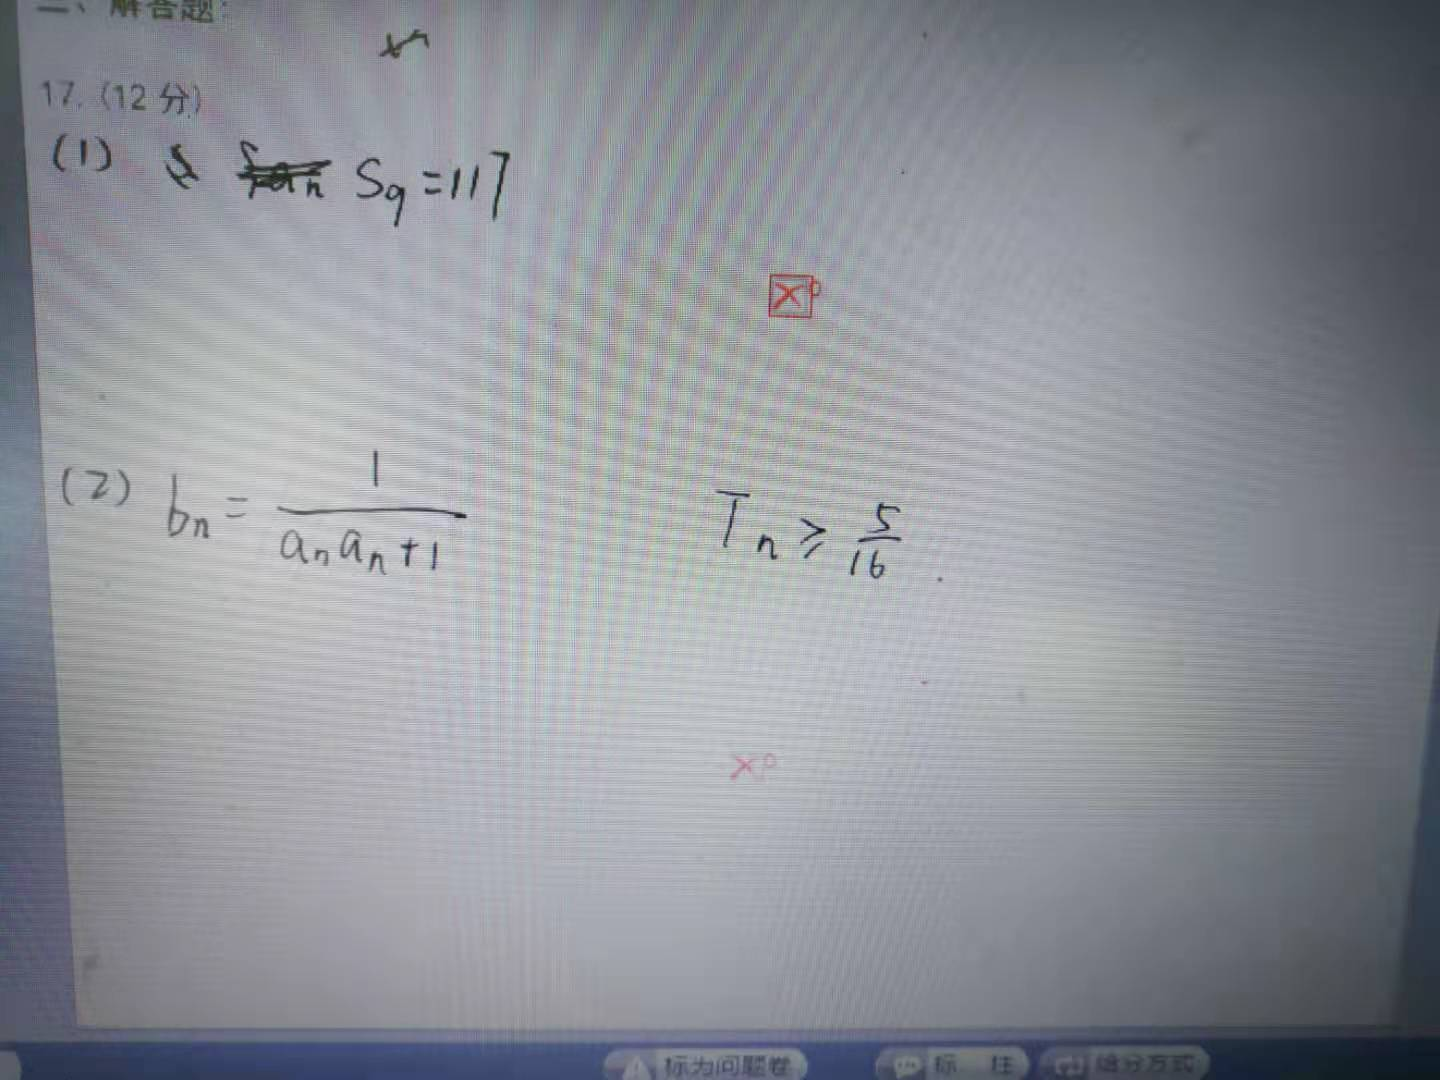 二、解答题:
17. (12 分)
(1) S₉=117
×0
(2) bₙ = 1/(aₙaₙ+1) Tₙ ≥ 5/16 .
×0
标为问题卷 标 注 给分方式